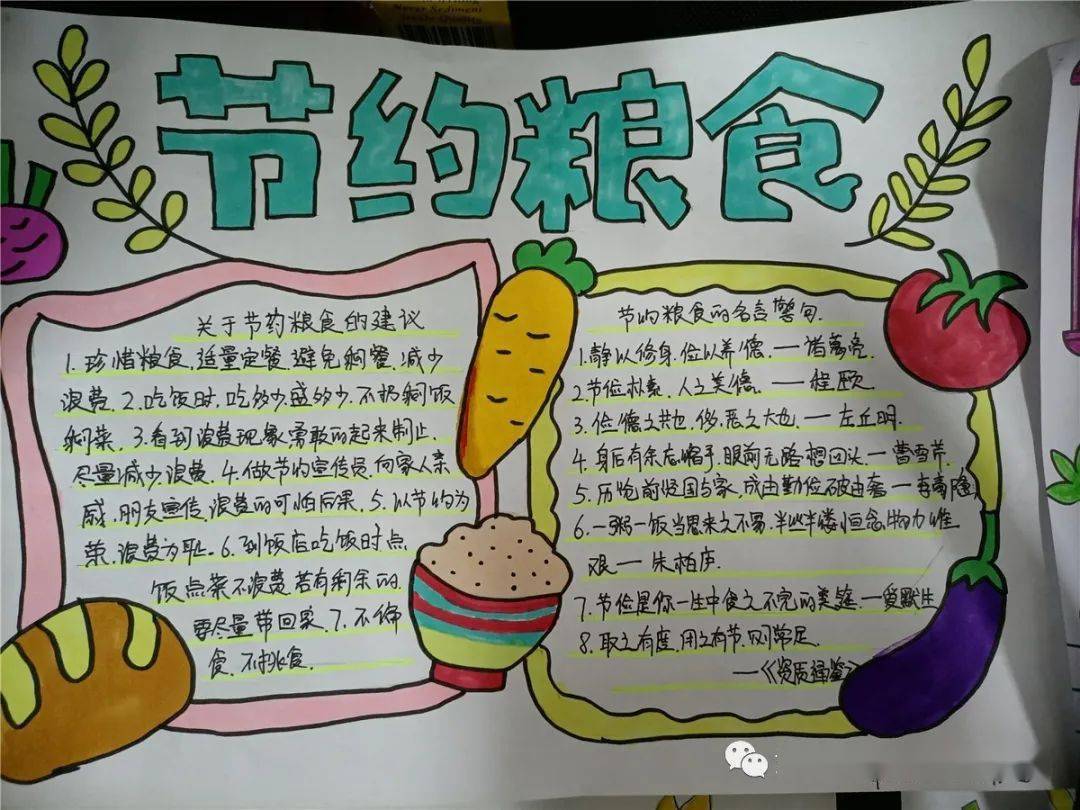 Never Sediment
Quality
节约粮食
关于节约粮食的建议
1.珍惜粮食.适量定餐.避免剩餐.减少
浪费.2.吃饭时.吃多少盛多少.不扔剩饭
剩菜.3.看到浪费现象勇敢的起来制止.
尽量减少浪费.4.做节约宣传员.向家人亲
戚.朋友宣传.浪费的可怕后果.5.以节约为
荣.浪费为耻。6.到饭店吃饭时点
饭点菜不浪费若有剩余的
要尽量带回家.7.不偏
食.不挑食.
节约粮食的名言警句.
1.静以修身.俭以养德.——诸葛亮.
2.节俭朴素.人之美德.——程颐.
3.俭德之共也.侈.恶之大也——左丘明.
4.身后有余忘缩手.眼前无路想回头.—曹雪芹.
5.历览前贤国与家.成由勤俭破由奢—李商隐
6.一粥一饭当思来之不易.半丝半缕恒念.物力维
艰——朱柏庐.
7.节俭是你一生中食之不完的美筵.—爱默生
8.取之有度.用之有节.则常足
—《资质通鉴》